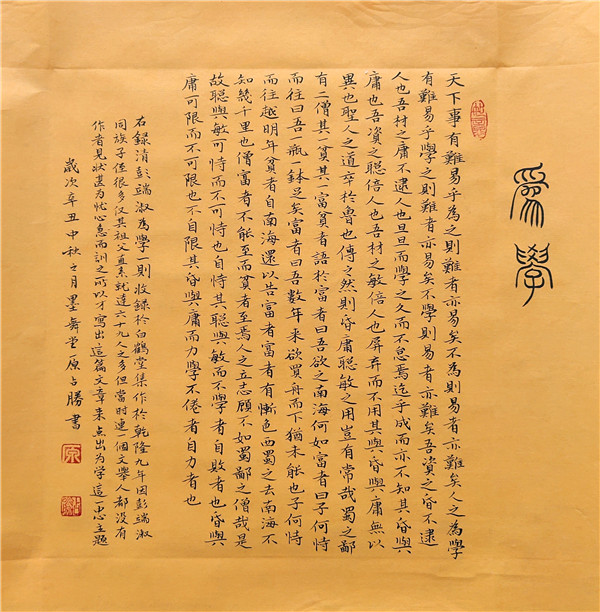 為學
天下事有難易乎為之則難者亦易矣不為則易者亦難矣人之為學
有難易乎學之則難者亦易矣不學則易者亦難矣吾資之昏不逮
人也吾材之庸不逮人也旦旦而學之久而不怠焉迄乎成而亦不知其昏與
庸也吾資之聰倍人也吾材之敏倍人也屏弃而不用其與昏與庸無以
異也聖人之道卒於魯也傳之然則昏庸聰敏之用豈有常哉蜀之鄙
有二僧其一貧其一富貧者語於富者曰吾欲之南海何如富者曰子何恃
而往曰吾一瓶一鉢足矣富者曰吾數年来欲買舟而下猶未能也子何恃
而往越明年貧者自南海還以告富者富者有慚色西蜀之去南海不
知幾千里也僧富者不能至而貧者至焉人之立志顧不如蜀鄙之僧哉是
故聰與敏可恃而不可恃也自恃其聰與敏而不學者自敗者也昏與
庸可限而不可限也不自限其昏與庸而力學不倦者自力者也
右錄清彭端淑為學一則收錄於白鶴堂集作於乾隆九年因彭端淑
同族子侄很多仅其祖父直系就達六十九人之多但當時連一個文舉人都沒有
作者見狀甚为忧心急而訓之所以才寫出這篇文章来点出为学這一主題
歲次辛丑中秋之月墨舞堂原占勝書
原